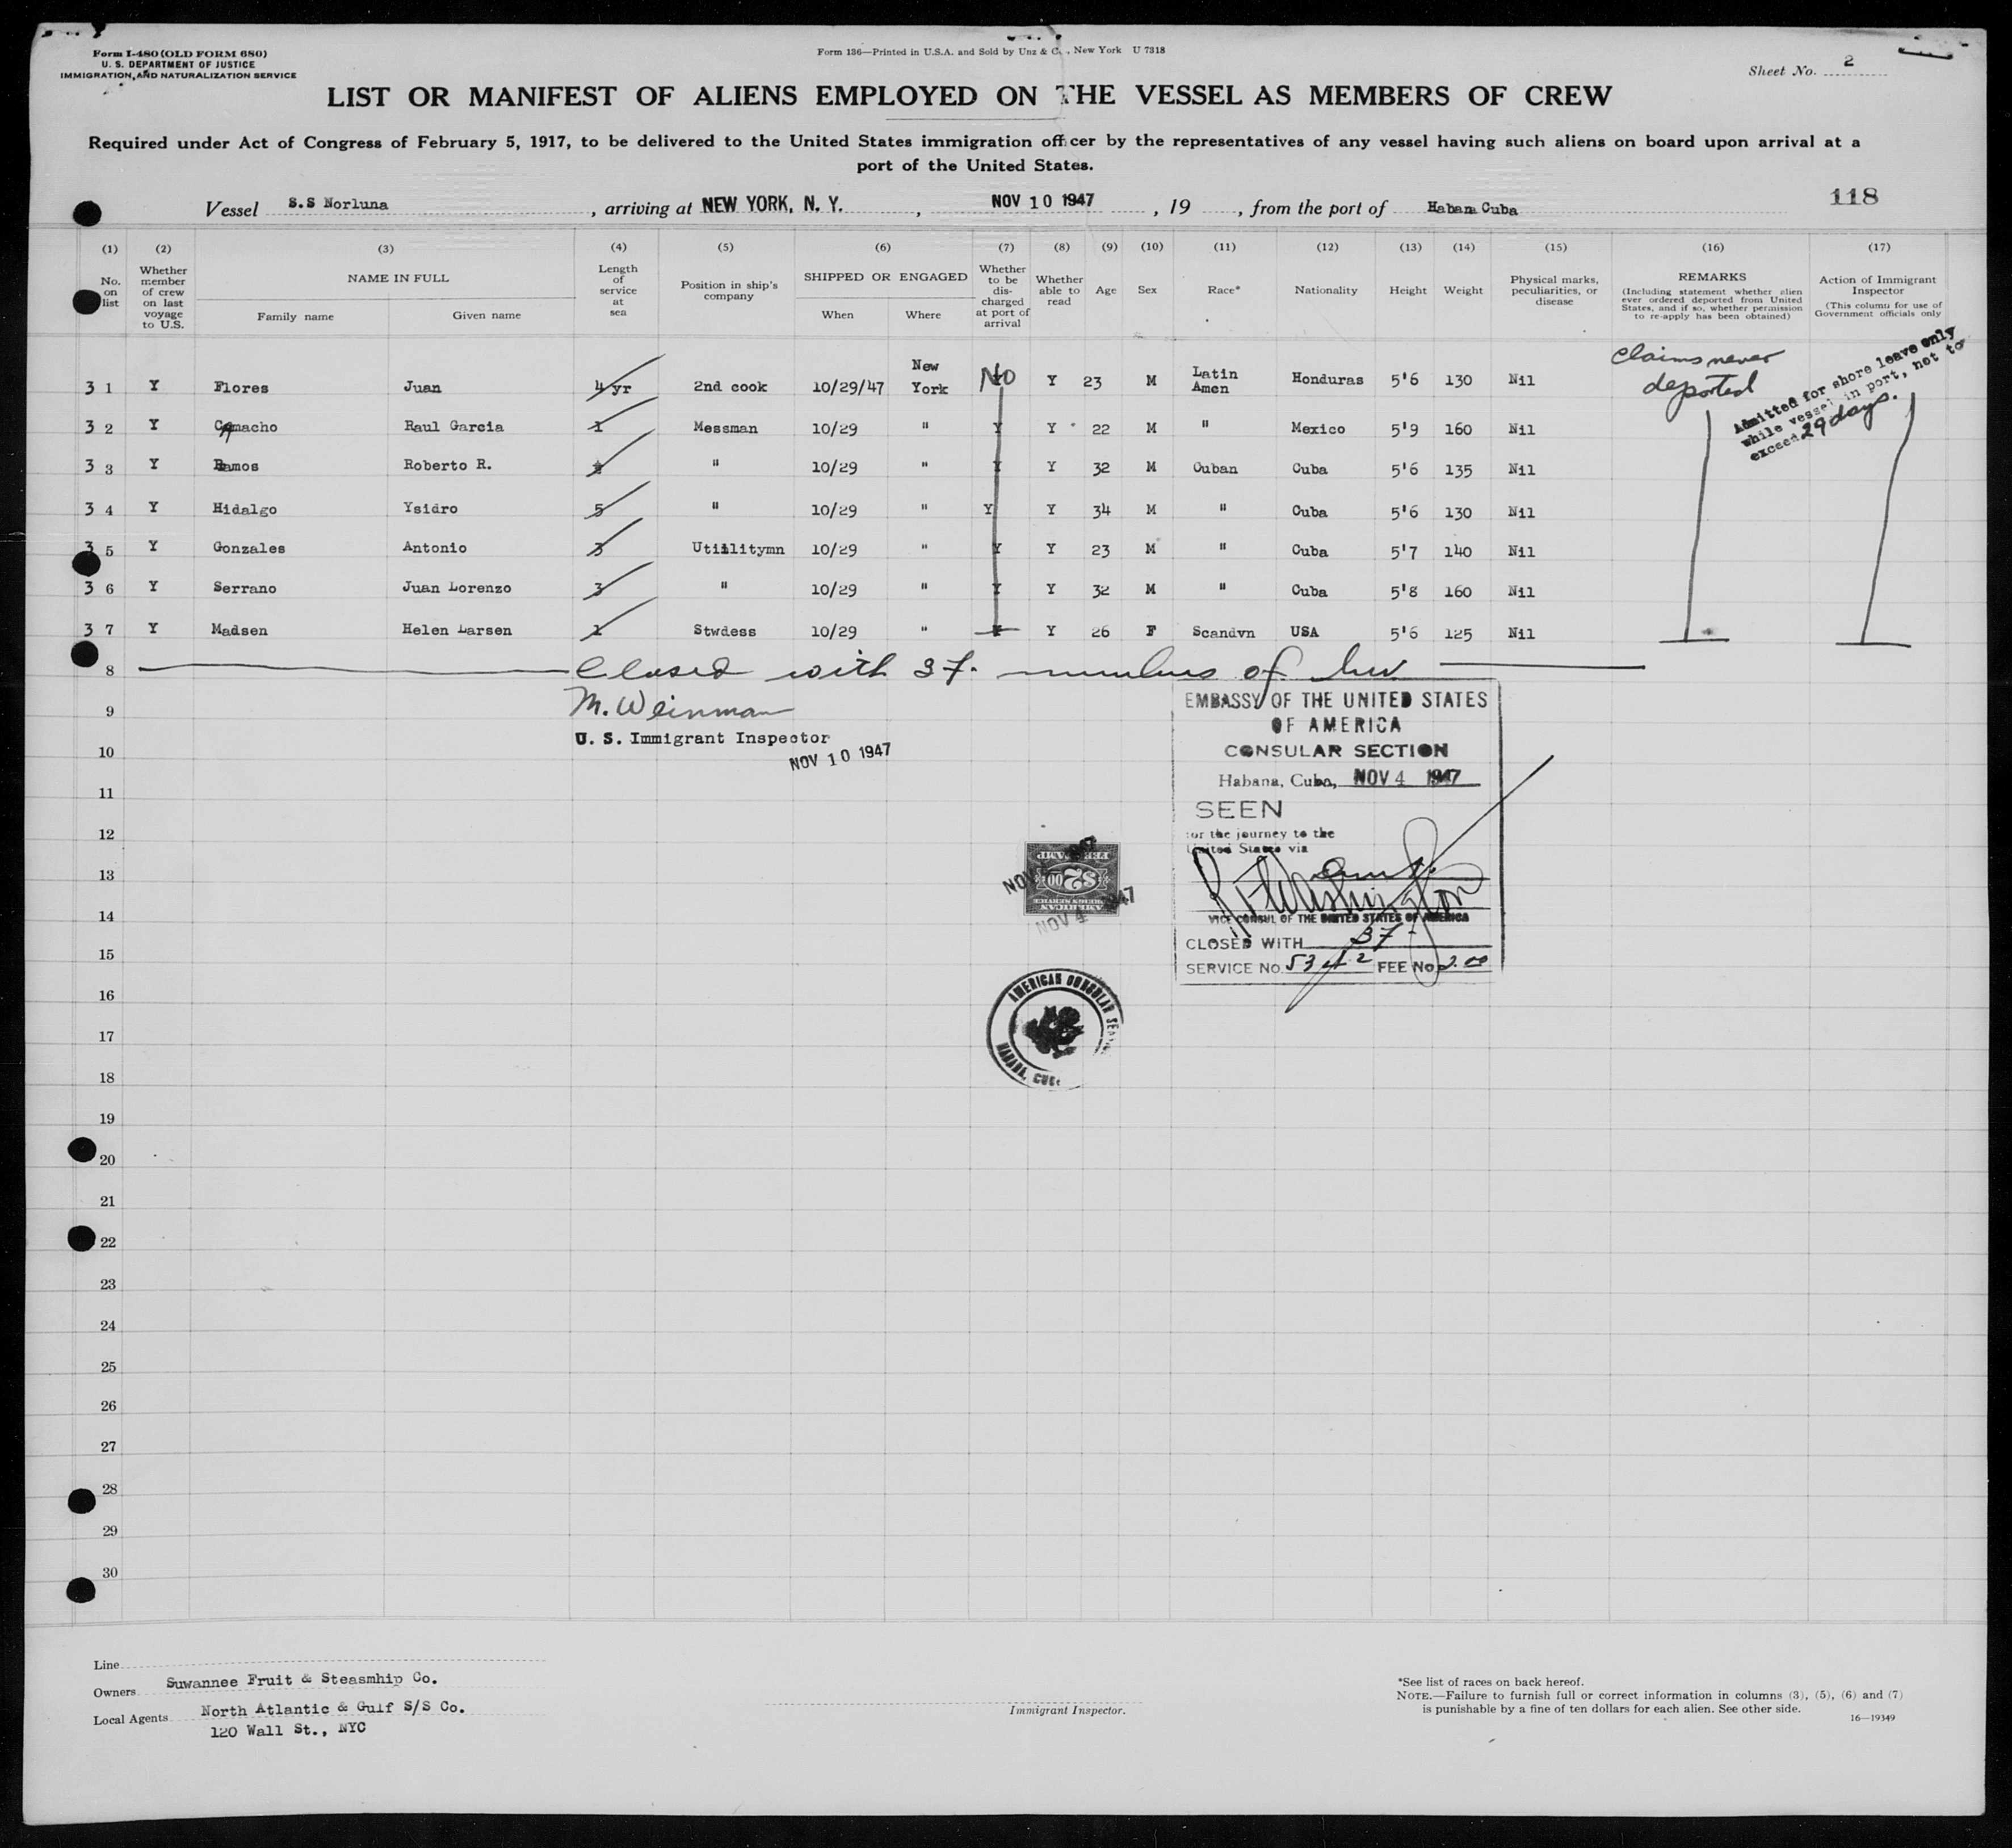 Form I-480 (OLD FORM 680)
U. S. DEPARTMENT OF JUSTICE
IMMIGRATION AND NATURALIZATION SERVICE
Form 136—Printed in U.S.A. and Sold by Unz & C. , New York U 7318
Sheet No. 2
LIST OR MANIFEST OF ALIENS EMPLOYED ON THE VESSEL AS MEMBERS OF CREW
Required under Act of Congress of February 5, 1917, to be delivered to the United States immigration officer by the representatives of any vessel having such aliens on board upon arrival at a
port of the United States.
Vessel S.S Norluna , arriving at NEW YORK, N. Y. , NOV 10 1947 , 19 , from the port of Habana Cuba
118
(1) (2) (3) (4) (5) (6) (7) (8) (9) (10) (11) (12) (13) (14) (15) (16) (17)
No. on list
Whether member of crew on last voyage to U.S.
NAME IN FULL
Family name Given name
Length of service at sea
Position in ship's company
SHIPPED OR ENGAGED
When Where
Whether to be discharged at port of arrival
Whether able to read
Age
Sex
Race*
Nationality
Height
Weight
Physical marks, peculiarities, or disease
REMARKS
(Including statement whether alien ever ordered deported from United States, and if so, whether permission to re-apply has been obtained)
Action of Immigrant Inspector
(This column for use of Government officials only
3 1 Y Flores Juan 4 yr 2nd cook 10/29/47 New York No Y 23 M Latin Amen Honduras 5'6 130 Nil
claims never deported
Admitted for shore leave only
while vessel in port, not to
exceed 29 days.
3 2 Y Camacho Raul Garcia 1 Messman 10/29 " Y Y 22 M " Mexico 5'9 160 Nil
3 3 Y Ramos Roberto R. " 10/29 " Y Y 32 M Cuban Cuba 5'6 135 Nil
3 4 Y Hidalgo Ysidro 5 " 10/29 " Y Y 34 M " Cuba 5'6 130 Nil
3 5 Y Gonzales Antonio 3 Utiilitymn 10/29 " Y Y 23 M " Cuba 5'7 140 Nil
3 6 Y Serrano Juan Lorenzo 3 " 10/29 " Y Y 32 M " Cuba 5'8 160 Nil
3 7 Y Madsen Helen Larsen 1 Stwdess 10/29 " Y Y 26 F Scandvn USA 5'6 125 Nil
8 Closed with 37. members of
9 M. Weinman
U. S. Immigrant Inspector
10 NOV 10 1947
EMBASSY OF THE UNITED STATES
OF AMERICA
CONSULAR SECTION
Habana, Cuba, NOV 4 1947
11
SEEN
12
for the journey to the
United States via
13
AMERICAN
FOREIGN SERVICE
$2 00
FEE STAMP
NOV 4 1947
14
VICE CONSUL OF THE UNITED STATES OF AMERICA
CLOSED WITH 37
15
SERVICE No 5342 FEE No 2.00
16
AMERICAN CONSULAR SE
HABANA, CUB
17
18
19
20
21
22
23
24
25
26
27
28
29
30
Line
Owners Suwannee Fruit & Steasmhip Co.
Local Agents North Atlantic & Gulf S/S Co.
120 Wall St., NYC
Immigrant Inspector.
*See list of races on back hereof.
NOTE.—Failure to furnish full or correct information in columns (3), (5), (6) and (7)
is punishable by a fine of ten dollars for each alien. See other side.
16—19349